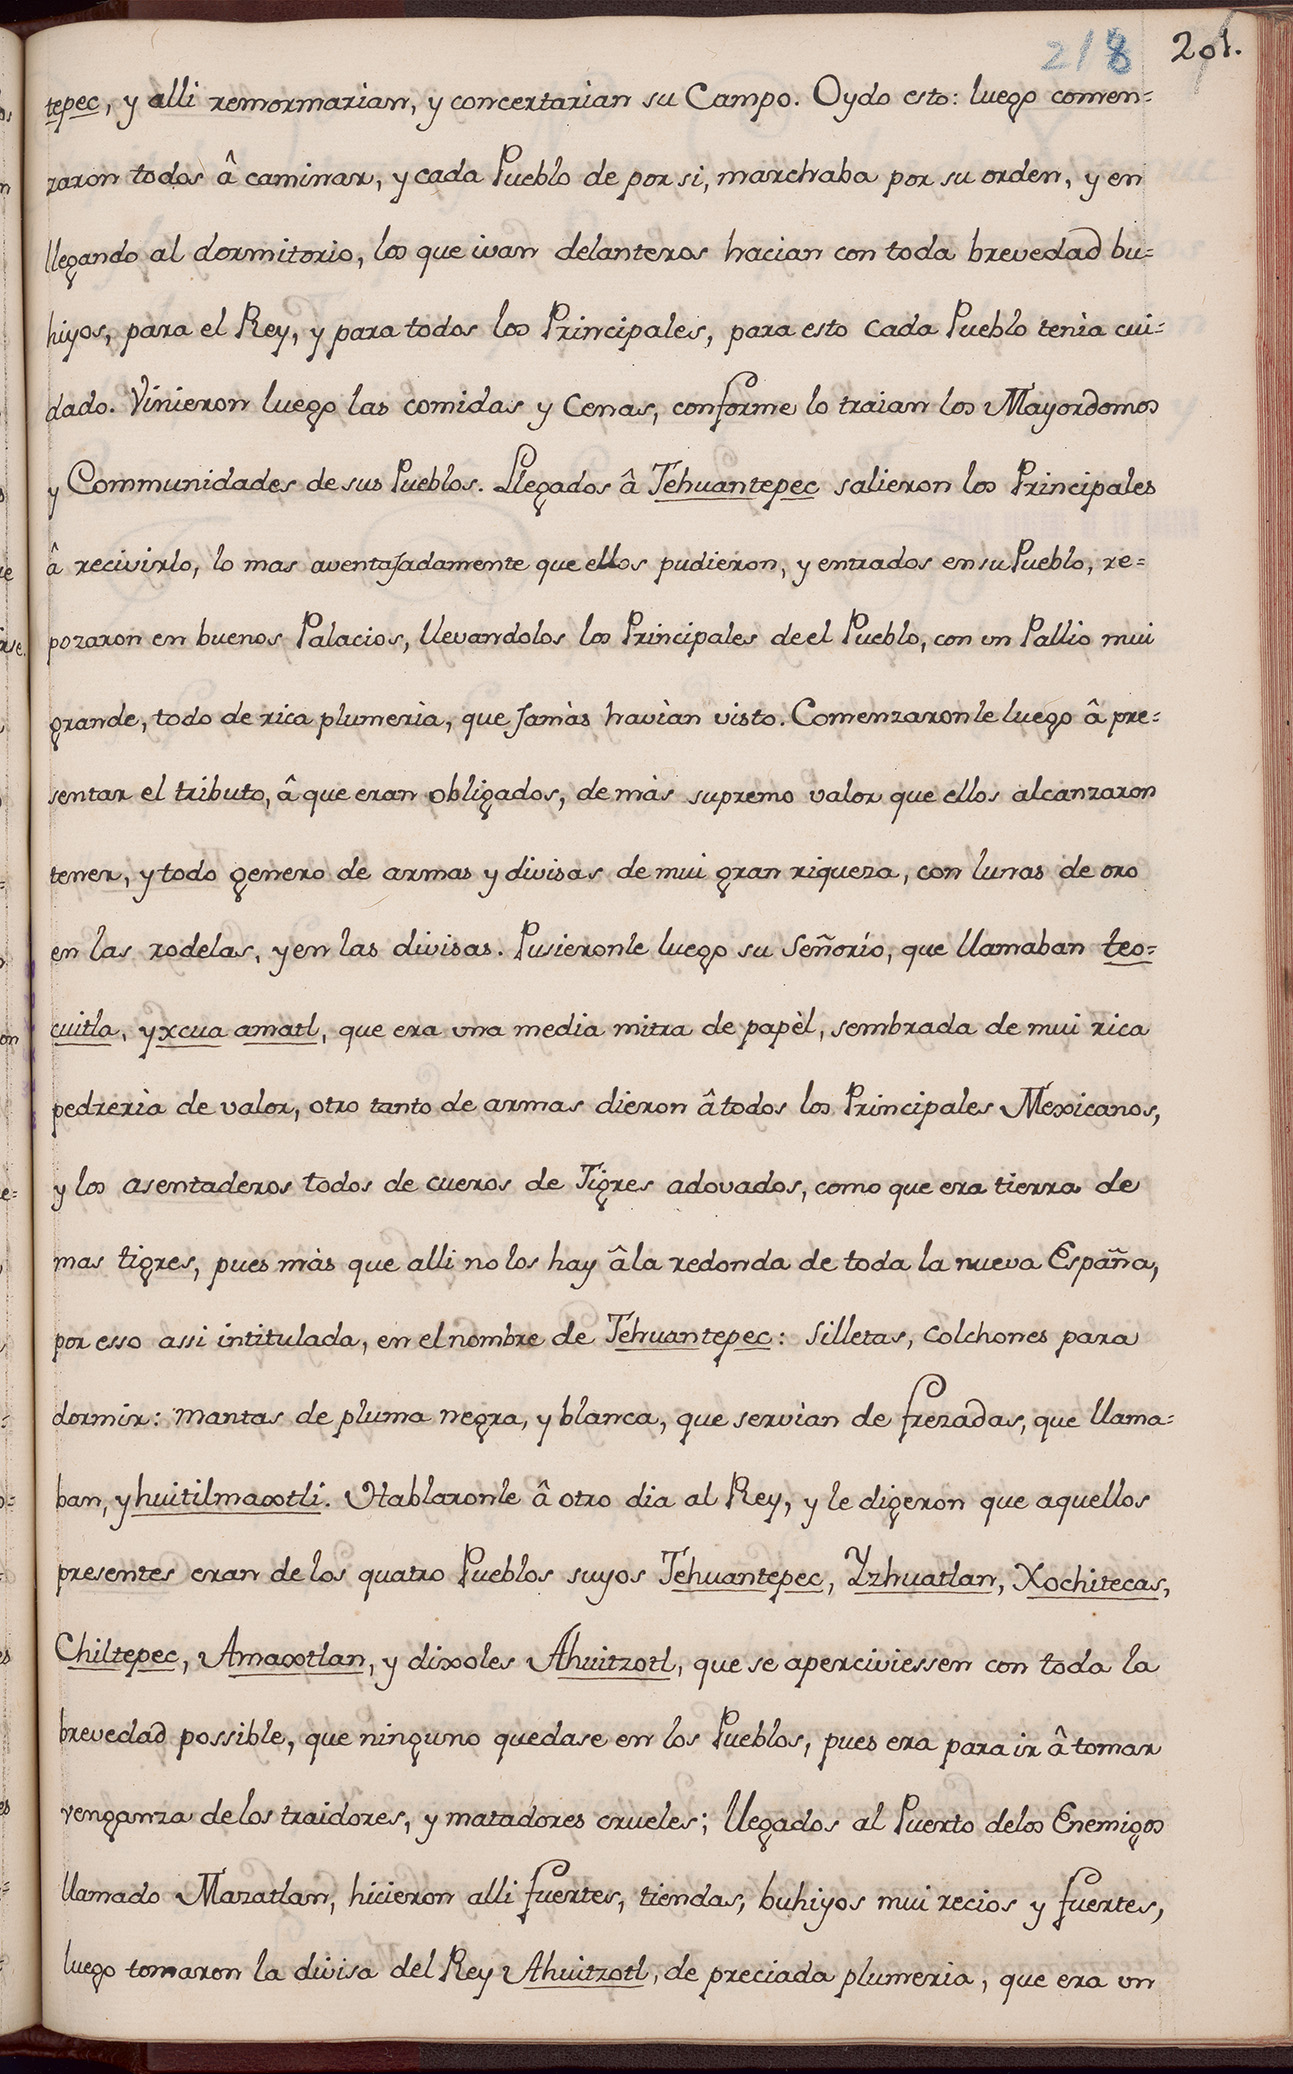 218 201.
tepec, y alli remormarian, y concertarian su Campo. Oydo esto: luego comen=
zaron todos â caminar, y cada Pueblo de por si, marchaba por su orden, y en
llegando al dormitorio, los que ivan delanteros hacian con toda brevedad bu=
hiyos, para el Rey, y para todos los Principales, para esto cada Pueblo tenìa cui=
dado. Vinieron luego las comidas y Cenas, conforme lo traian los Mayordomos
y Communidades de sus Pueblos. Llegados â Tehuantepec salieron los Principales
â recivirlo, lo mas aventaJadamente que ellos pudieron, y entrados en su Pueblo, re=
pozaron en buenos Palacios, llevandolos los Principales de el Pueblo, con un Pallio mui
grande, todo de rica plumerìa, que Jamàs havìan visto. Comenzaronle luego â pre=
sentar el tributo, â que eran obligados, de màs supremo valor que ellos alcanzaron
tener, y todo genero de armas y divisas de mui gran riqueza, con lunas de oro
en las rodelas, y en las divisas. Pusieronle luego su Señorío, que llamaban teo=
cuitla, yxcua amatl, que era una media mitra de papèl, sembrada de mui rica
pedrerìa de valor, otro tanto de armas dieron â todos los Principales Mexicanos,
y los asentaderos todos de cueros de Tigres adovados, como que era tierra de
mas tigres, pues màs que alli no los hay â la redonda de toda la nueva España,
por esso assi intitulada, en el nombre de Tehuantepec: Silletas, Colchones para
dormir: mantas de pluma negra, y blanca, que servìan de frezadas, que llama=
ban, yhuitilmaxtli. Hablaronle â otro dia al Rey, y le digeron que aquellos
presentes eran de los quatro Pueblos suyos Tehuantepec, Yzhuatlan, Xochitecas,
Chiltepec, Amaxtlan, y dixoles Ahuitzotl, que se aperciviessen con toda la
brevedad possible, que ninguno quedase en los Pueblos, pues era para ir â tomar
venganza de los traidores, y matadores crueles; llegados al Puerto delos Enemigos
llamado Mazatlan, hicieron alli fuertes, tiendas, buhiyos mui recios y fuertes,
luego tomaron la divisa del Rey Ahuitzotl, de preciada plumeria, que era un